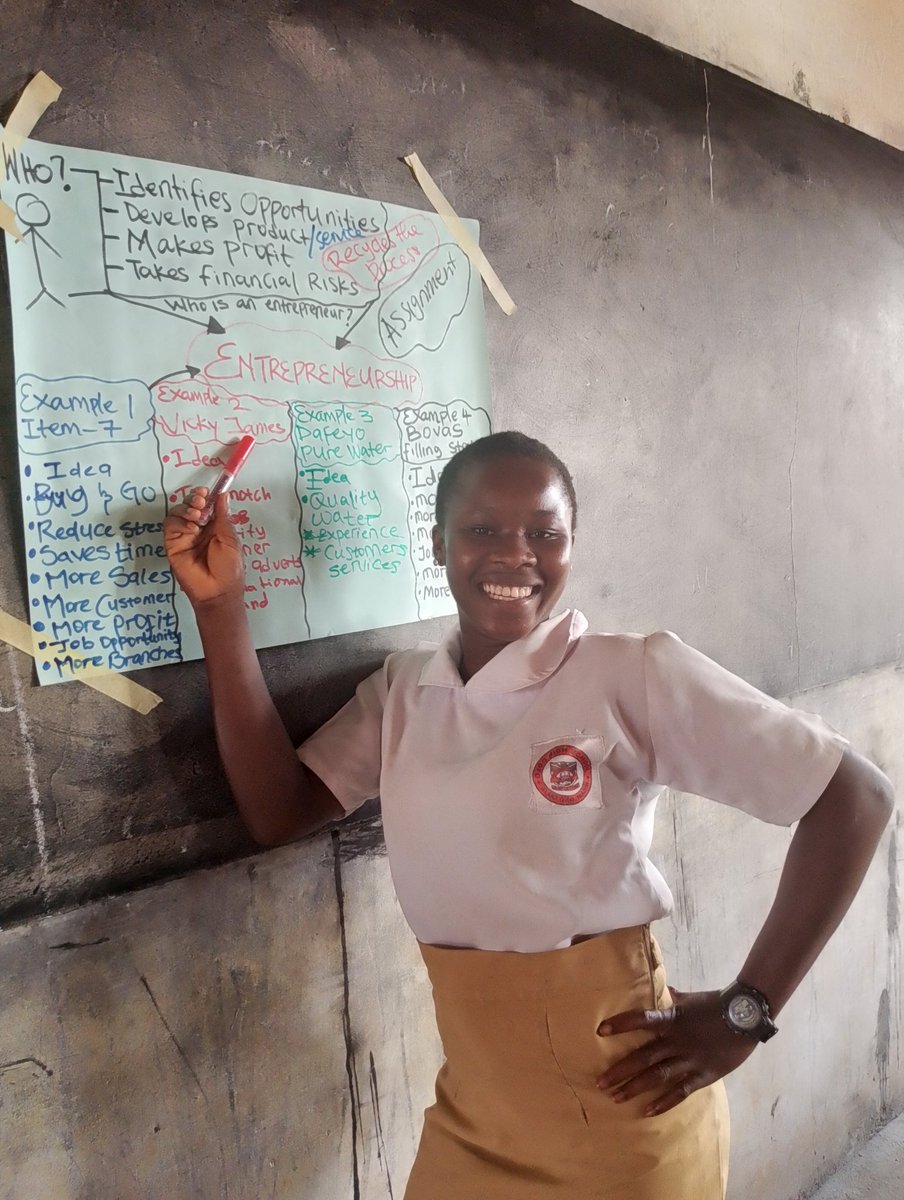 WHO?
- Identifies Opportunities
- Develops product/service
- Makes profit
- Takes financial Risks
Who is an entrepreneur?
Recycles the
Process
Assignment
ENTREPRENEURSHIP
Example 1
Item-7
• Idea
• Buy & GO
• Reduce Stress
• Saves time
• More Sales
• More Customer
• More profit
• Job Opportunity
• More Branches
Example 2
Vicky James
• Idea
adverts
Example 3
Dafeyo
Pure Water
• Idea
• Quality
Water
* Experience
* Customers
services
Example 4
Bovas
filling